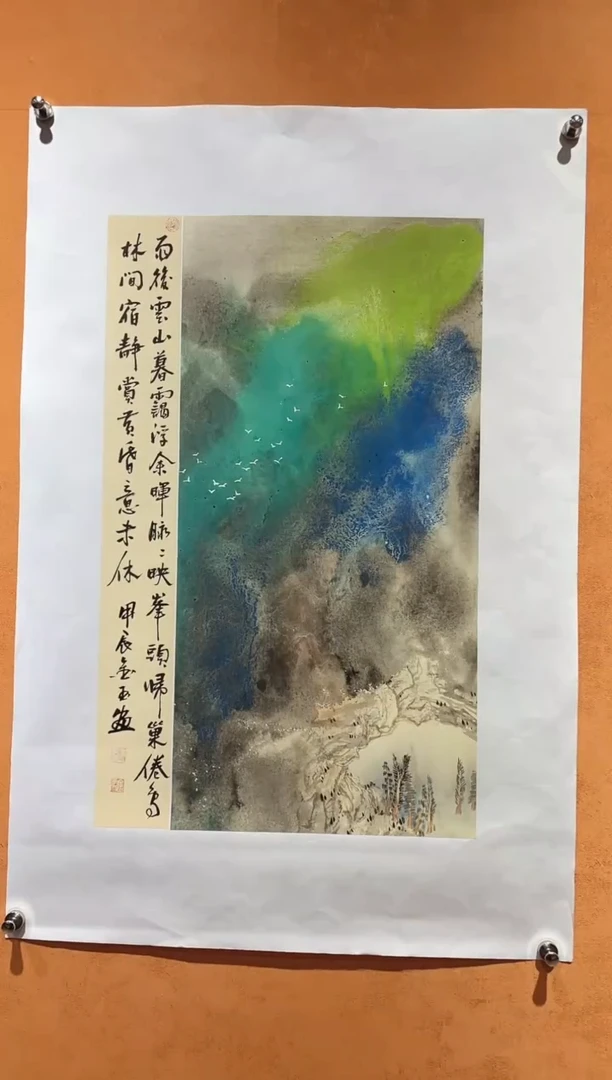 雨後雲山暮靄浮余暉脉〻映峯頭歸巢倦鳥
林間宿靜賞黃昏意未休 甲辰金玉画